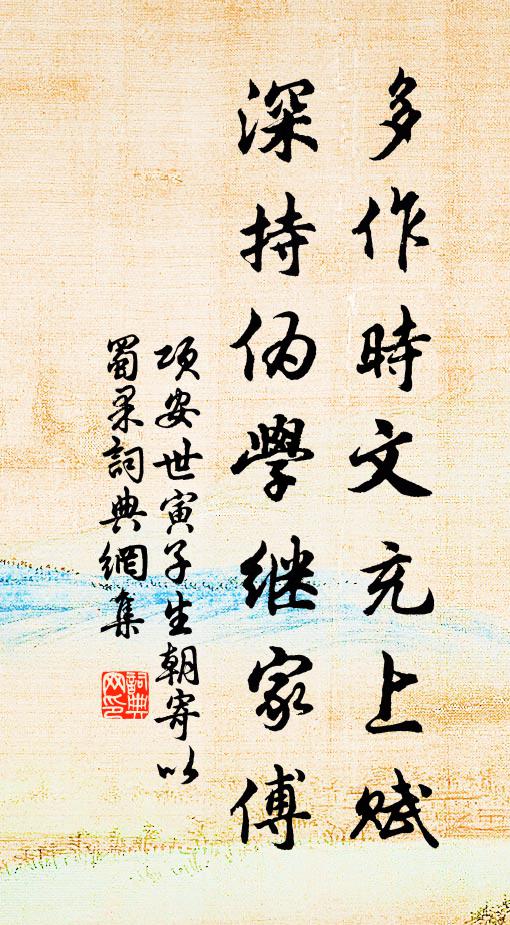 多作時文充上賦
深持偽學继家傅
项安世寅子生朝寄以
蜀果詞典網集
詞典网印